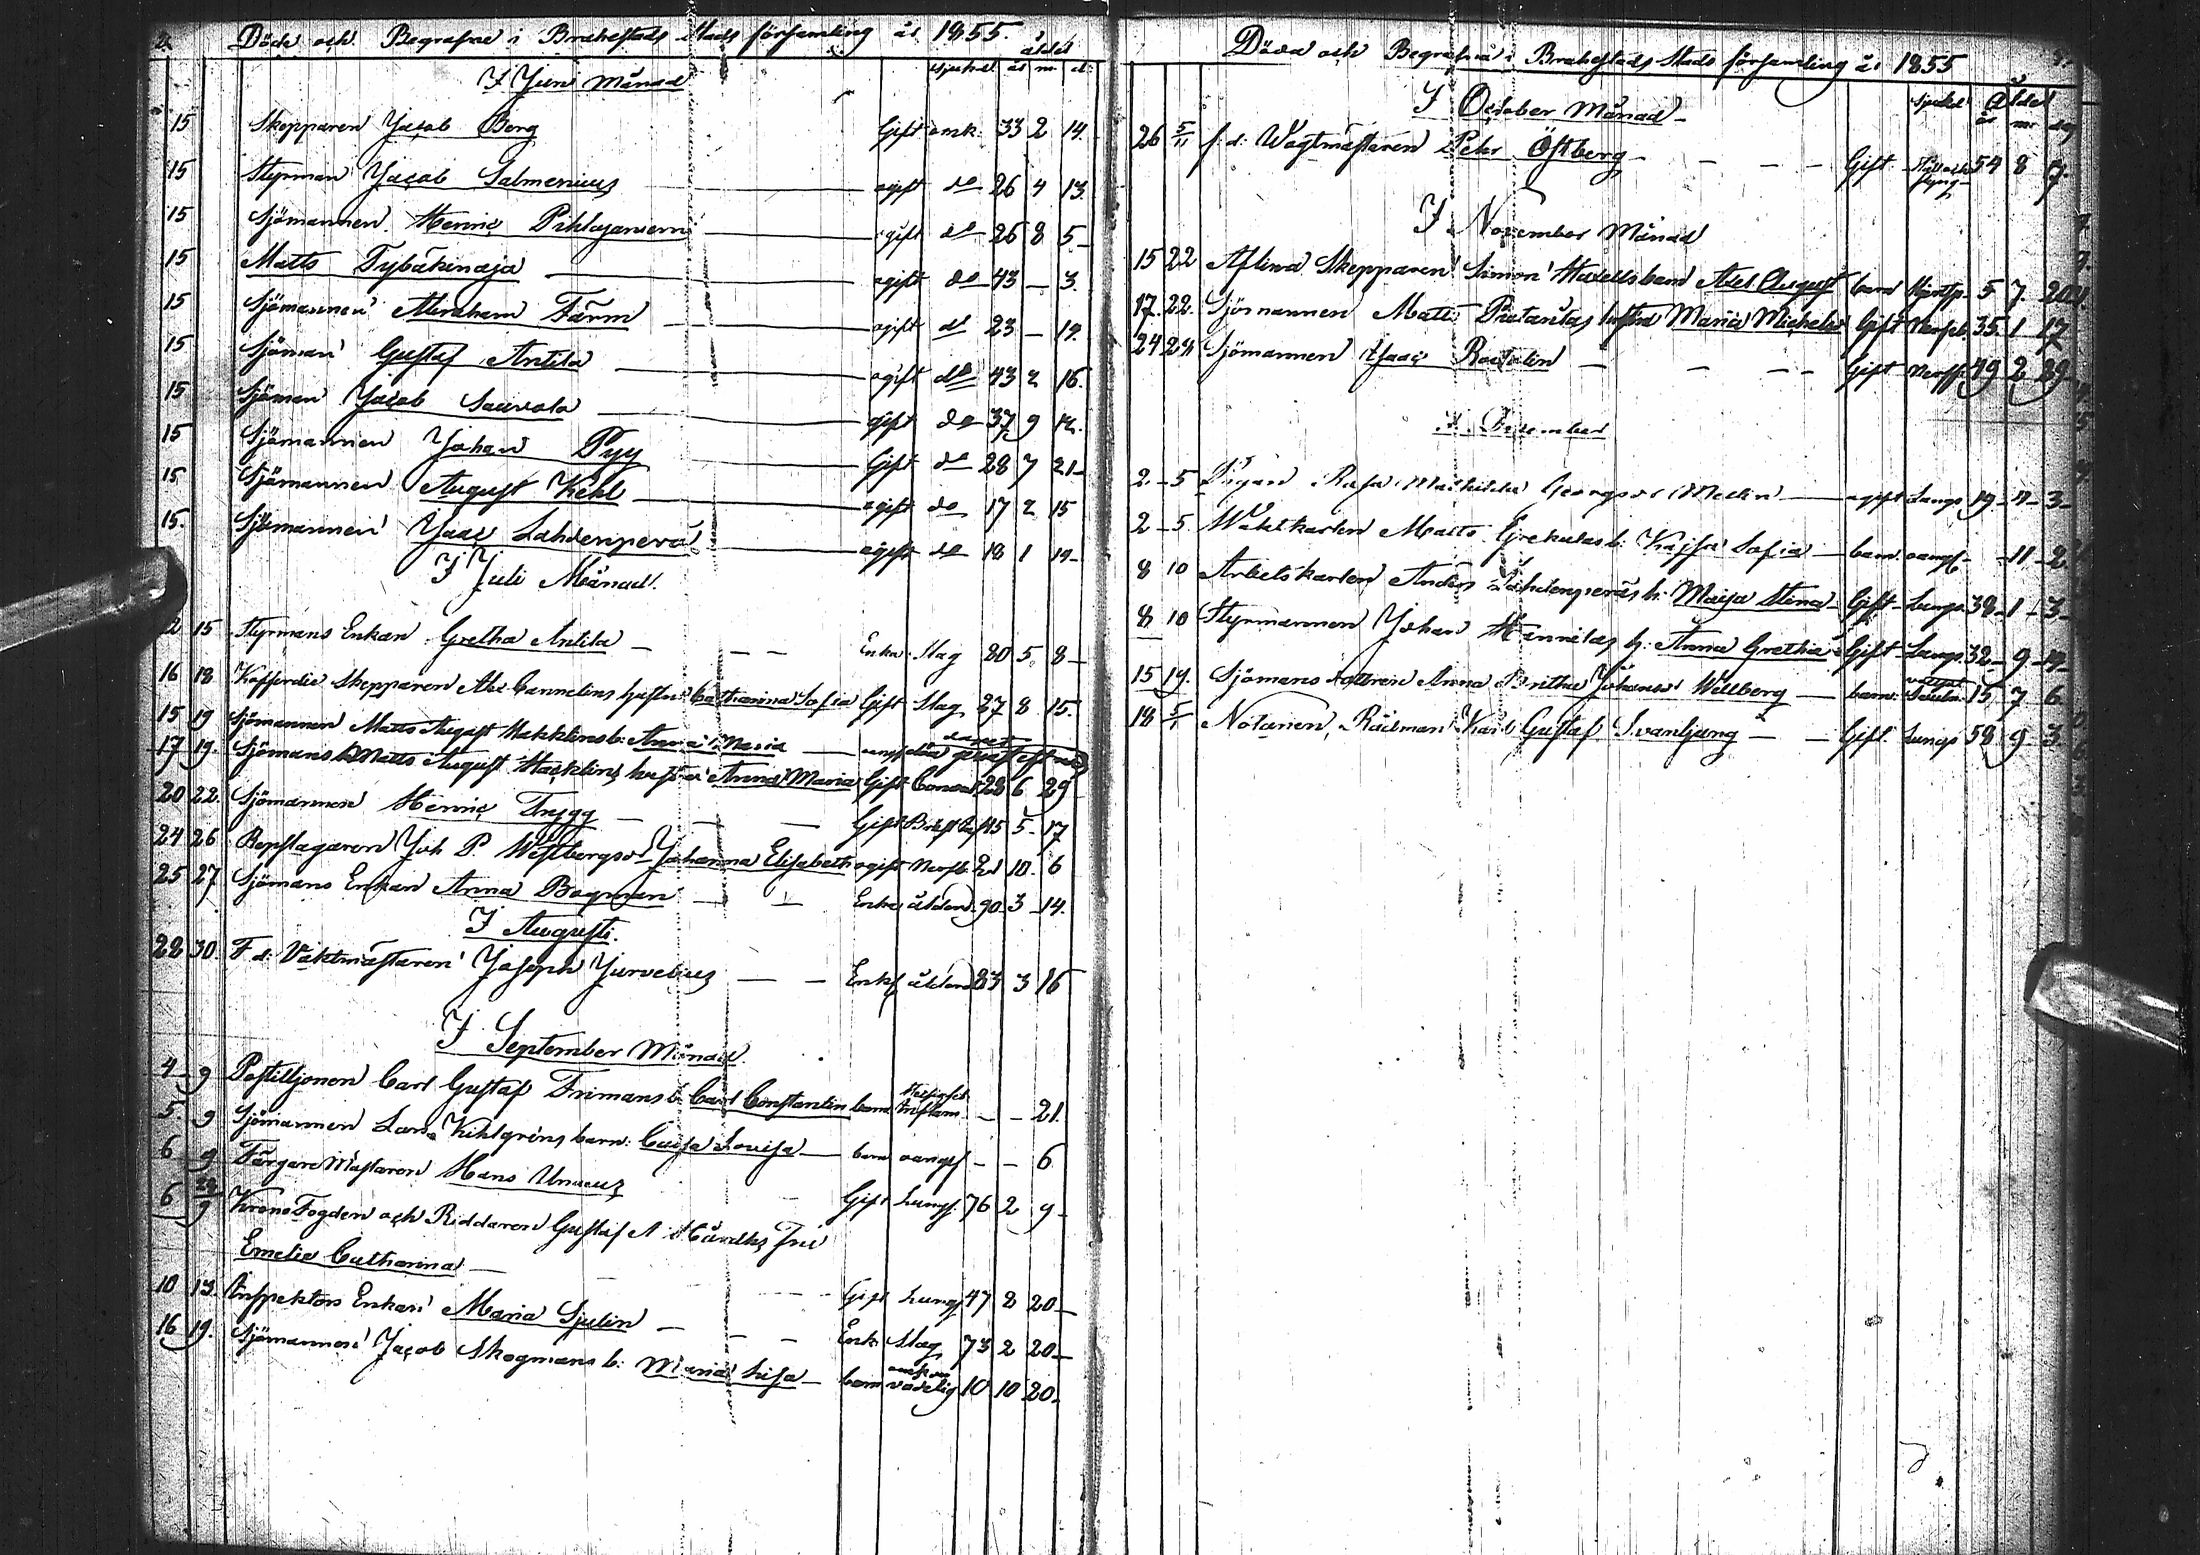 Döde och Begrafne i Brahestads Stads församling år 1855.
I Juni Månad sjukd. ålder år m. d.
15 Skepparen Jacob Berg Gift omk. 33 2 14.
15 Styrman Jacob Salmenius ogift do 26 4 13.
15 Sjömannen Henric Pihlajaniemi ogift do 26 8 5
15 Matts Tybäkinaja ogift do 43 — 3.
15 Sjömannen Abraham Färm ogift do 23 — 19.
15 Sjöman Gustaf Antila ogift do 43 2 16.
15 Sjöman Jacob Sauvola gift do 37 9 12.
15 Sjömannen Johan Pyy Gift do 28 7 21
15 Sjömannen August Kehl ogift do 17 2 15
15. Sjömannen Isac Lahdenperä ogift do 18 1 19
I Juli Månad.
12 15 Styrmans Enkan Gretha Antila — — — Enka Slag 80 5 8
16 18 Kofferdie Skepparen Abr. Cannelins hustru Catharina Sofia Gift Slag 27 8 15.
15 19 Sjömannen Matts August Hakklins b. Anna Maria
17 19. Sjömans Matts August Hacklins hustru Anna Maria Gift 28 6 29
20 22. Sjömannen Henric Trygg — — — Gift 45 5 17
24 26 Repslagaren Joh P. Westbergs dr Johanna Elisabeth ogift Nerfb. 21 10 6
25 27 Sjömans Enkan Anna Bogman — — Enka ålderd. 90 3 14.
I Augusti.
28 30. F. d. Vaktmästaren Joseph Jurvelius — — Enkl ålderd 83 3 16
I September Månad.
4 9 Postilljonen Carl Gustaf Frimans b. Carl Constantin barn Inflam — — 21.
5. 9 Sjömannen Lars Kihlgrens barn. Cajsa Lovisa — barn oangif — — 6
6 9 Färgare Mästaren Hans Unaeus Gift Lungs. 76 2 9
6 29/9 Krono Fogden och Riddaren Gustaf A Fru
Emelie Catharina — — Gift Lungs 47 8 20
10 13. Inspektors Enkan Maria Sjulin — — — Enk Slag 73 2 20
16 19. Sjömannen Jacob Skogmans b. Maria Lisa — barn vådelig 10 10 20
Döda och Begrafna i Brahestads Stads församling år 1855
I October Månad sjukd. Ålder år m. dag
26 5/11 f. d. Vagtmästaren Petr Östberg — — — Gift 54 8 7.
I November Månad
15 22 Aflidna Skepparen Simon barn Axel August barn 5 7. 20
17. 22. Sjömannen Matts hustru Maria Michelsd. Gift Nerfb. 35. 1 17
24 24 Sjömannen Isac Rautalin — — — — Gift Nerff. 49 2 29
I December
2 5 Pigan Mathilda Georgsdr Mellin — ogift Lungs 19 11 3
2 5 Wäktkarlen Matts Grekulas b. Kajsa Sofia — barn oangf — 11 2
8 10 Arbetskarlen Anders Lahdenperäs h. Maija Stina — Gift Lungs 38 1 3
8 10 Styrmannen Johan Hannilas h. Anna Gretha Gift Lungs 32 9 19
15 19. Sjömans dottren Anna Britha Johansd. Wellberg — barn. 15 7 6
18 5/1 Notarien, Rådman Karl Gustaf Svanljung — — Gift. Lungs 58 9 3.